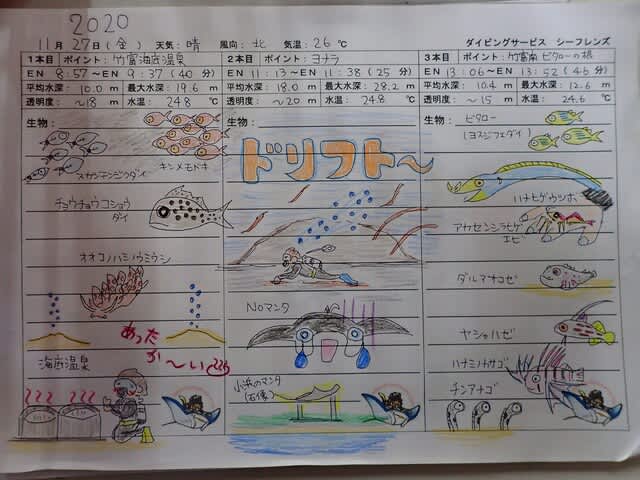 2020
11月27日(金) 天気:晴 風向:北 気温:26℃ ダイビングサービス シーフレンズ
1本目 ポイント:竹富海底温泉
EN 8:57〜EN 9:37(40分)
平均水深 10.0 m 最大水深 19.6 m
透明度: 〜18 m 水温: 24.8 ℃
生物:
スカシテンジクダイ キンメモドキ
チョウチョウコショウ
ダイ
オオコノハミノウミウシ
あったか〜い
海底温泉
2本目 ポイント:ヨナラ
EN 11:13〜EN 11:38(25分)
平均水深 18.0 m 最大水深 28.2 m
透明度: 〜20 m 水温: 24.8 ℃
生物:
ドリフト〜
NOマンタ
小浜のマンタ
(石像)
3本目 ポイント:竹富南ビタローの根
EN 13:06〜EN 13:52(46分)
平均水深 10.4 m 最大水深 12.6 m
透明度: 〜15 m 水温: 24.6 ℃
生物:
ビタロー
(ヨスジフエダイ)
ハナヒゲウツボ
アカセンジヒゲ
エビ
ダルマオコゼ
ヤシャハゼ
ハナミノカサゴ
チンアナゴ